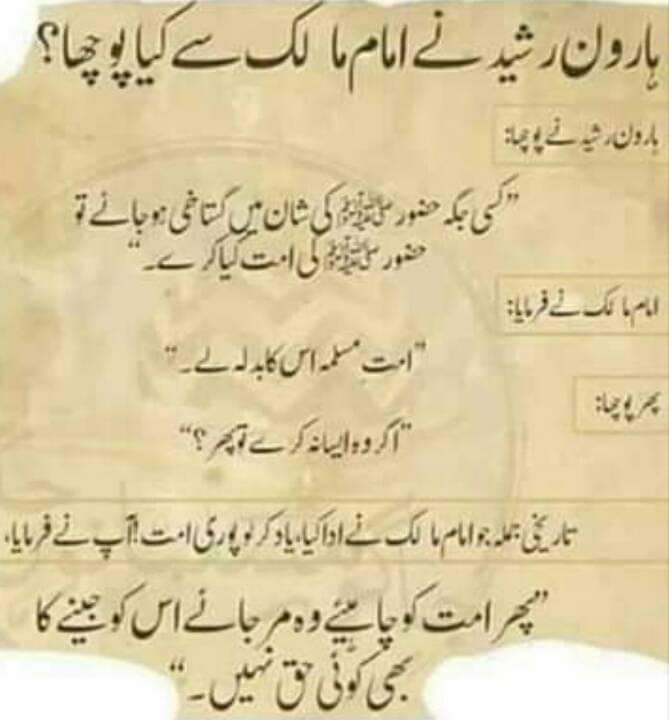 ہارون رشید نے امام مالک سے کیا پوچھا؟
ہارون رشید نے پوچھا:
”کسی جگہ حضور ﷺ کی شان میں گستاخی ہو جائے تو
حضور ﷺ کی امت کیا کرے۔“
امام مالک نے فرمایا:
”امت مسلمہ اس کا بدلہ لے۔“
پھر پوچھا:
”اگر وہ ایسا نہ کرے تو پھر؟“
تاریخی جملہ جو امام مالک نے ادا کیا، یاد کر لو پوری امت! آپ نے فرمایا،
”پھر امت کو چاہیئے وہ مر جائے اس کو جینے کا
بھی کوئی حق نہیں۔“